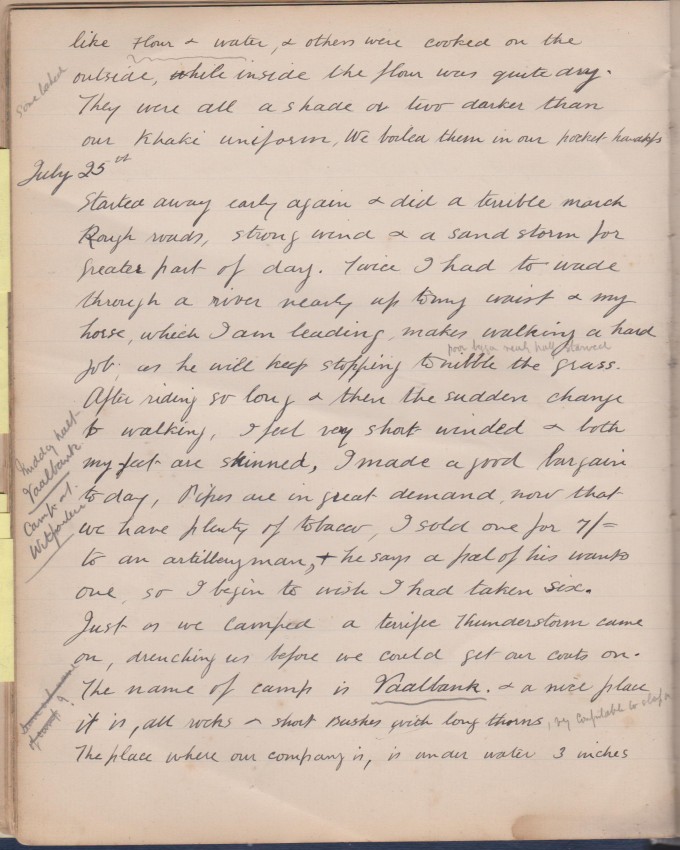 like flour & water, & others were cooked on the
some baked
outside, while inside the flour was quite dry.
They were all a shade or two darker than
our Khaki uniform, We boiled them in our pocket handkfs
July 25th
Started away early again & did a terrible march
Rough roads, strong wind & a sand storm for
greater part of day. Twice I had to wade
through a river nearly up to my waist & my
horse, which I am leading, makes walking a hard
poor nearly half starved
job, as he will keep stopping to nibble the grass.
After riding so long & then the sudden change
to walking, I feel very short winded & both
Midday halt-
Vaalbank
my feet are skinned, I made a good bargain
Camp at
to day, Pipes are in great demand, now that
we have plenty of tobacco, I sold one for 7/=
to an artilleryman, & he says a pal of his wants
one, so I begin to wish I had taken six.
Just as we camped a terrific thunderstorm came
on, drenching us before we could get our coats on.
The name of camp is Vaalbank. & a nice place
of camp?
it is, all rocks & short bushes with long thorns, comfortable to
The place where our company is, is under water 3 inches